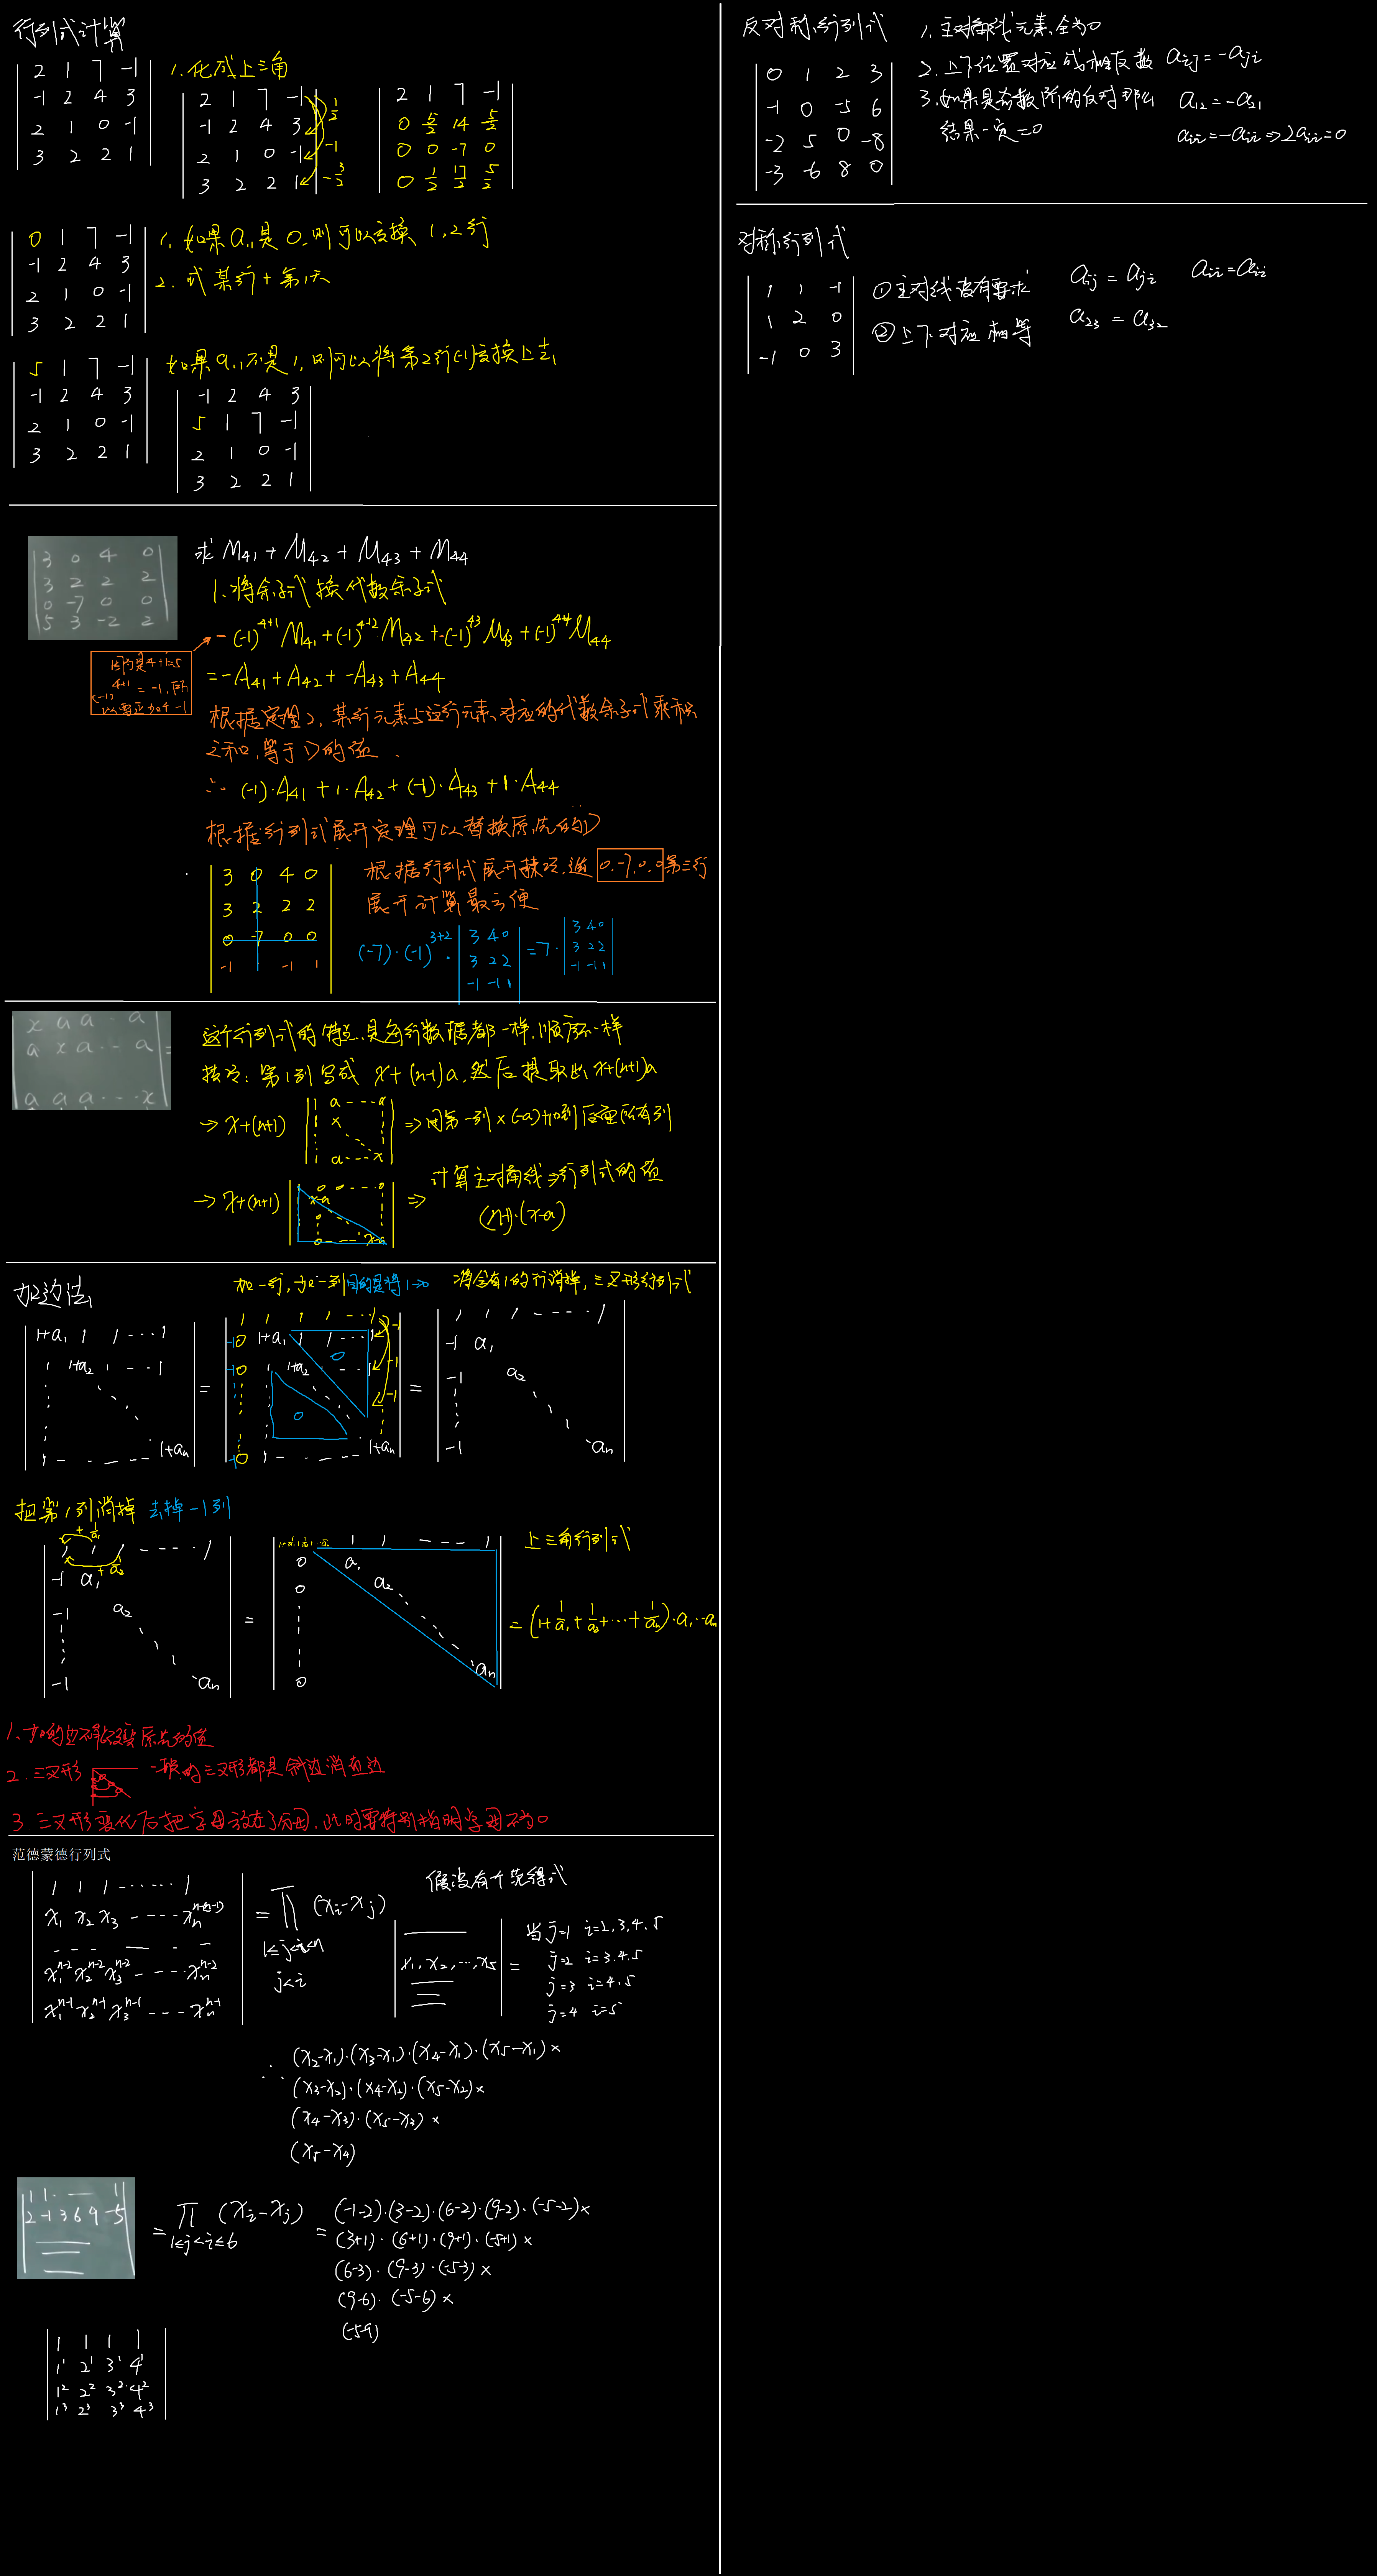 行列式计算
2 1 7 -1
-1 2 4 3
2 1 0 -1
3 2 2 1
1. 化成上三角
2 1 7 -1
-1 2 4 3
2 1 0 -1
3 2 2 1
1/2
-1
-3/2
2 1 7 -1
0 5/2 14 5/2
0 0 -7 0
0 1/2 17/2 5/2
0 1 7 -1
-1 2 4 3
2 1 0 -1
3 2 2 1
1. 如果a₁₁是0,则可以交换1,2行
2. 或某行+第1行
5 1 7 -1
-1 2 4 3
2 1 0 -1
3 2 2 1
如果a₁₁不是1,则可以将第2行(-1)交换上去
-1 2 4 3
5 1 7 -1
2 1 0 -1
3 2 2 1
3 0 4 0
3 2 2 2
0 -7 0 0
5 3 -2 2
求 M₄₁+M₄₂+M₄₃+M₄₄
1. 将余子式换代数余子式
-(-1)⁴⁺¹M₄₁+(-1)⁴⁺²M₄₂+-(-1)⁴³M₄₃+(-1)⁴⁺⁴M₄₄
因为是4+1=5
(-1)⁴⁺¹=-1,所
以需要加个-1
=-A₄₁+A₄₂+-A₄₃+A₄₄
根据定理2,某行元素与这行元素对应的代数余子式乘积
之和,等于D的值.
∴ (-1)·A₄₁+1·A₄₂+(-1)·A₄₃+1·A₄₄
根据行列式展开定理可以替换原先的D
3 0 4 0
3 2 2 2
0 -7 0 0
-1 1 -1 1
根据行列式展开技巧,选 0,-7,0,0 第三行
展开计算最方便
(-7)·(-1)³⁺²·
3 4 0
3 2 2
-1 -1 1
=7·
3 4 0
3 2 2
-1 -1 1
x a a … a
a x a … a =
a a a … x
这个行列式的特点,是每行数据都一样,顺序不一样
技巧:第1列写成 x+(n-1)a,然后提取出 x+(n+1)a
→ x+(n+1)
1 a --- a
x
1 a --- x
⇒ 用第一列×(-a)加到后面所有列
→ x+(n+1)
0 0 --- 0
x-a
0
0 --- x-a
⇒ 计算主对角线⇒行列式的值
(n+1)·(x-a)
加边法
加一行,加一列 目的是将1→0
将含有1的行消掉,三叉形行列式
1+a₁ 1 1 --- 1
1 1+a₂ 1 --- 1
1 --- 1+aₙ
=
1 1 1 1 --- 1
0 1+a₁ 1 1 --- 1
0 1 1+a₂ --- 1
0 1 --- 1+aₙ
-1
-1
-1
=
1 1 1 ---- 1
-1 a₁
-1 a₂
-1 aₙ
把第1列消掉 去掉-1列
1 1 1 ---- 1
-1 a₁
-1 a₂
-1 aₙ
=
1 1 --- 1
0 a₁
0 a₂
0 aₙ
上三角行列式
=(1+1/a₁+1/a₂+…+1/aₙ)·a₁…aₙ
1. 加的边不得改变原先的值
2. 三叉形 一般的三叉形都是斜边消直边
3 三叉形变化后把字母放在了分母,此时要特别指明字母不为0
范德蒙德行列式
1 1 1 ------ 1
x₁ x₂ x₃ ---- xₙⁿ⁻⁽ⁿ⁻¹⁾
x₁ⁿ⁻² x₂ⁿ⁻² x₃ⁿ⁻² ---- xₙⁿ⁻²
x₁ⁿ⁻¹ x₂ⁿ⁻¹ x₃ⁿ⁻¹ ---- xₙⁿ⁻¹
= ∏ (xᵢ-xⱼ)
1≤j<i≤n
j<i
假设有个范得式
x₁,x₂,…,x₅
=
当j=1 i=2,3,4,5
j=2 i=3,4,5
j=3 i=4,5
j=4 i=5
∴ (x₂-x₁)·(x₃-x₁)·(x₄-x₁)·(x₅-x₁)×
(x₃-x₂)·(x₄-x₂)·(x₅-x₂)×
(x₄-x₃)·(x₅-x₃)×
(x₅-x₄)
1 1 … 1
2 -1 3 6 9 -5
= ∏ (xᵢ-xⱼ)
1≤j<i≤6
= (-1-2)·(3-2)·(6-2)·(9-2)·(-5-2)×
(3+1)·(6+1)·(9+1)·(-5+1)×
(6-3)·(9-3)·(-5-3)×
(9-6)·(-5-6)×
(-5-9)
1 1 1 1
1¹ 2¹ 3¹ 4¹
1² 2² 3² 4²
1³ 2³ 3³ 4³
反对称行列式
0 1 2 3
-1 0 -5 6
-2 5 0 -8
-3 -6 8 0
1. 主对角线元素全为0
2. 上下位置对应成相反数 aᵢⱼ=-aⱼᵢ
3. 如果是奇数阶的反对那么
结果一定=0
a₁₂=-a₂₁
aᵢᵢ=-aᵢᵢ⇒2aᵢᵢ=0
对称行列式
1 1 -1
1 2 0
-1 0 3
①主对线没有要求 aᵢⱼ=aⱼᵢ aᵢᵢ=aᵢᵢ
②上下对应相等 a₂₃=a₃₂